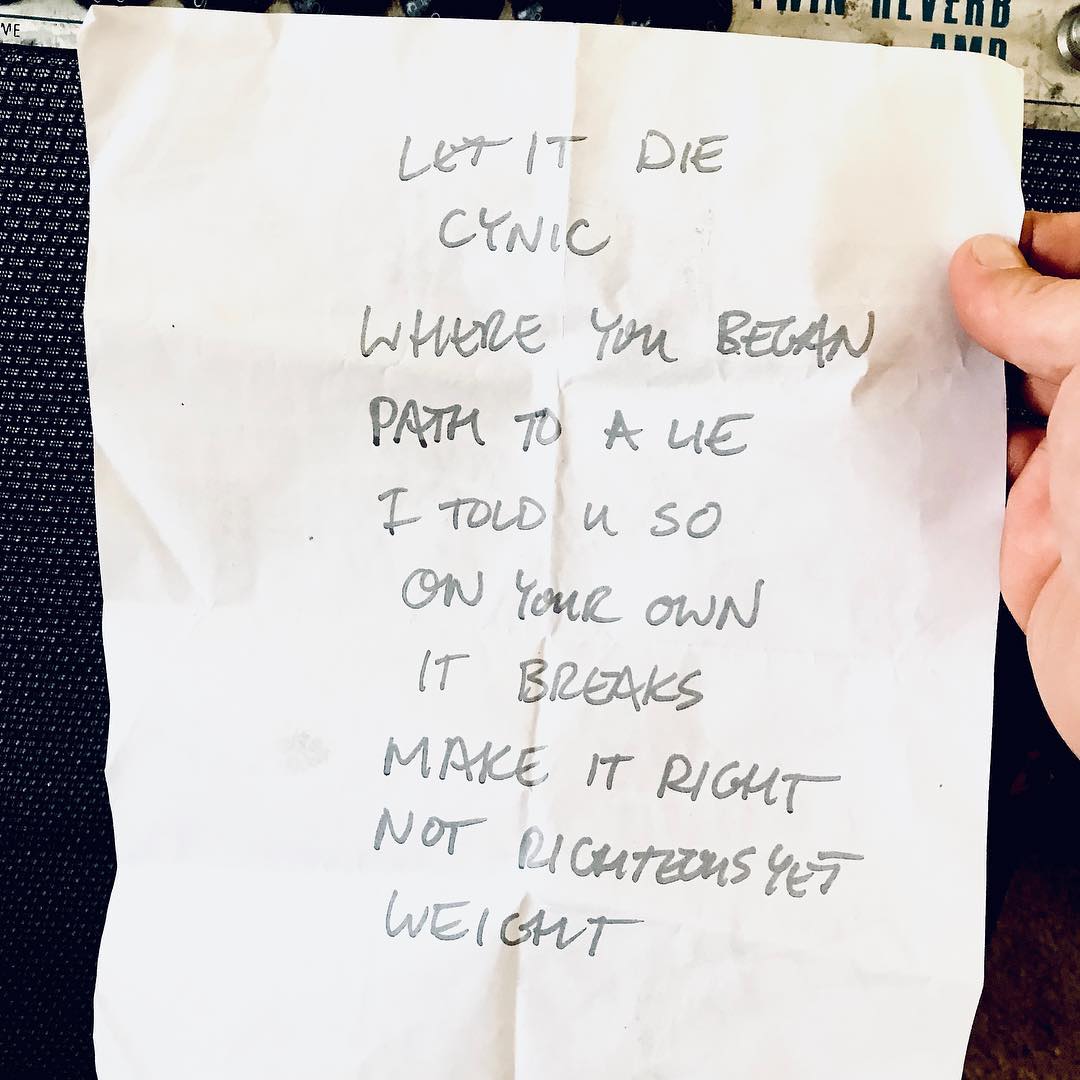 ME
TWIN REVERB
AMP
LET IT DIE
CYNIC
WHERE YOU BEGAN
PATH TO A LIE
I TOLD U SO
ON YOUR OWN
IT BREAKS
MAKE IT RIGHT
NOT RIGHTEOUS YET
WEIGHT